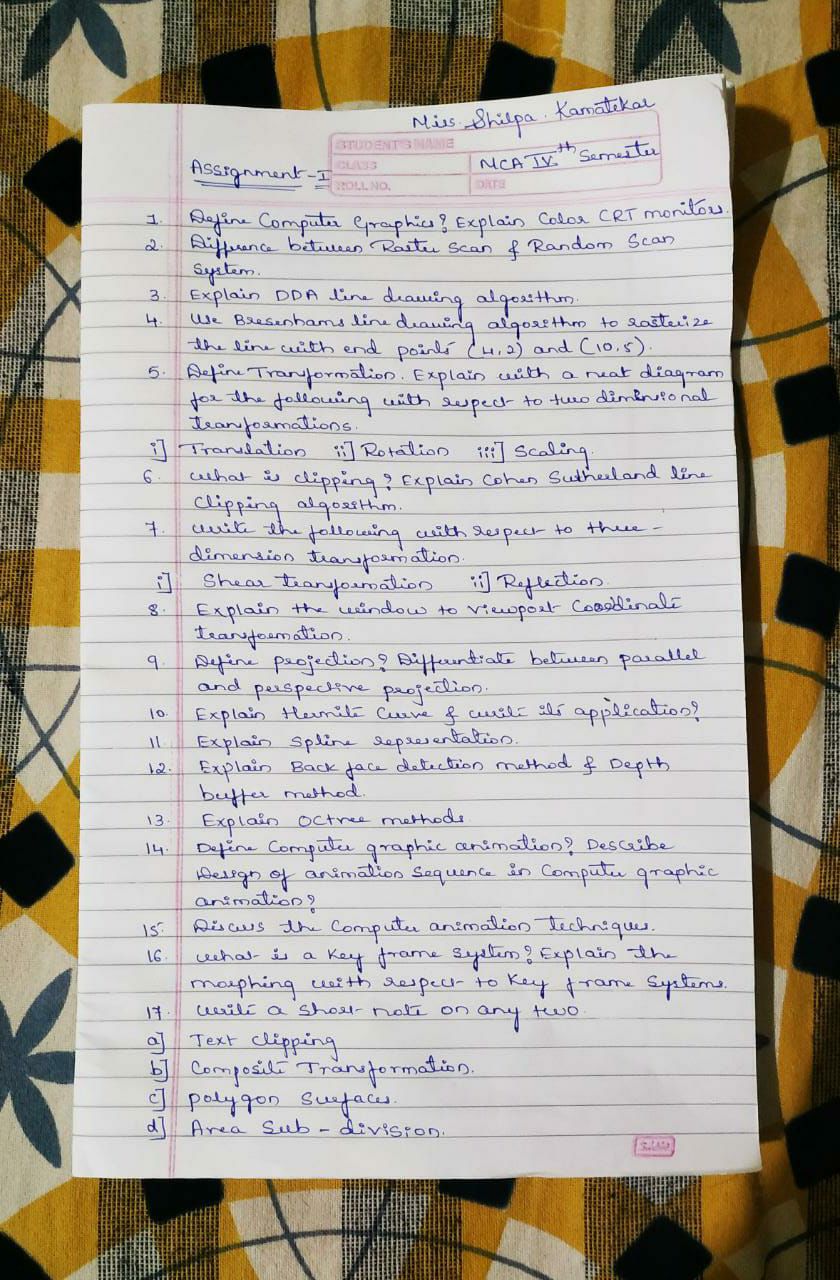 Miss. Shilpa. Kamatekar
STUDENT'S NAME
Assignment - I
CLASS
MCA IV.th Semester
ROLL NO.
DATE
1. Define Computer Graphics? Explain Color CRT monitors.
2. Difference between Raster Scan & Random Scan
System.
3. Explain DDA line drawing algorithm.
4. Use Bresenhams line drawing algorithm to rasterize
the line with end points (4,2) and (10,5).
5. Define Transformation. Explain with a neat diagram
for the following with respect to two dimensional
transformations.
i] Translation ii] Rotation iii] Scaling.
6. What is clipping? Explain Cohen Sutherland line
Clipping algorithm.
7. Write the following with respect to three-
dimension transformation.
i] Shear transformation ii] Reflection.
8. Explain the window to viewport Coordinate
transformation.
9. Define projection? Differentiate between parallel
and perspective projection.
10. Explain Hermite Curve & write its application?
11. Explain Spline representation.
12. Explain Back face detection method & Depth
buffer method.
13. Explain Octree methods.
14. Define Computer graphic animation? Describe
Design of animation Sequence in Computer graphic
animation?
15. Discuss the Computer animation techniques.
16. What is a Key frame System? Explain the
morphing with respect to Key frame Systems.
17. Write a short note on any two.
a] Text clipping
b] Composite Transformation.
c] polygon Surfaces.
d] Area Sub-division.